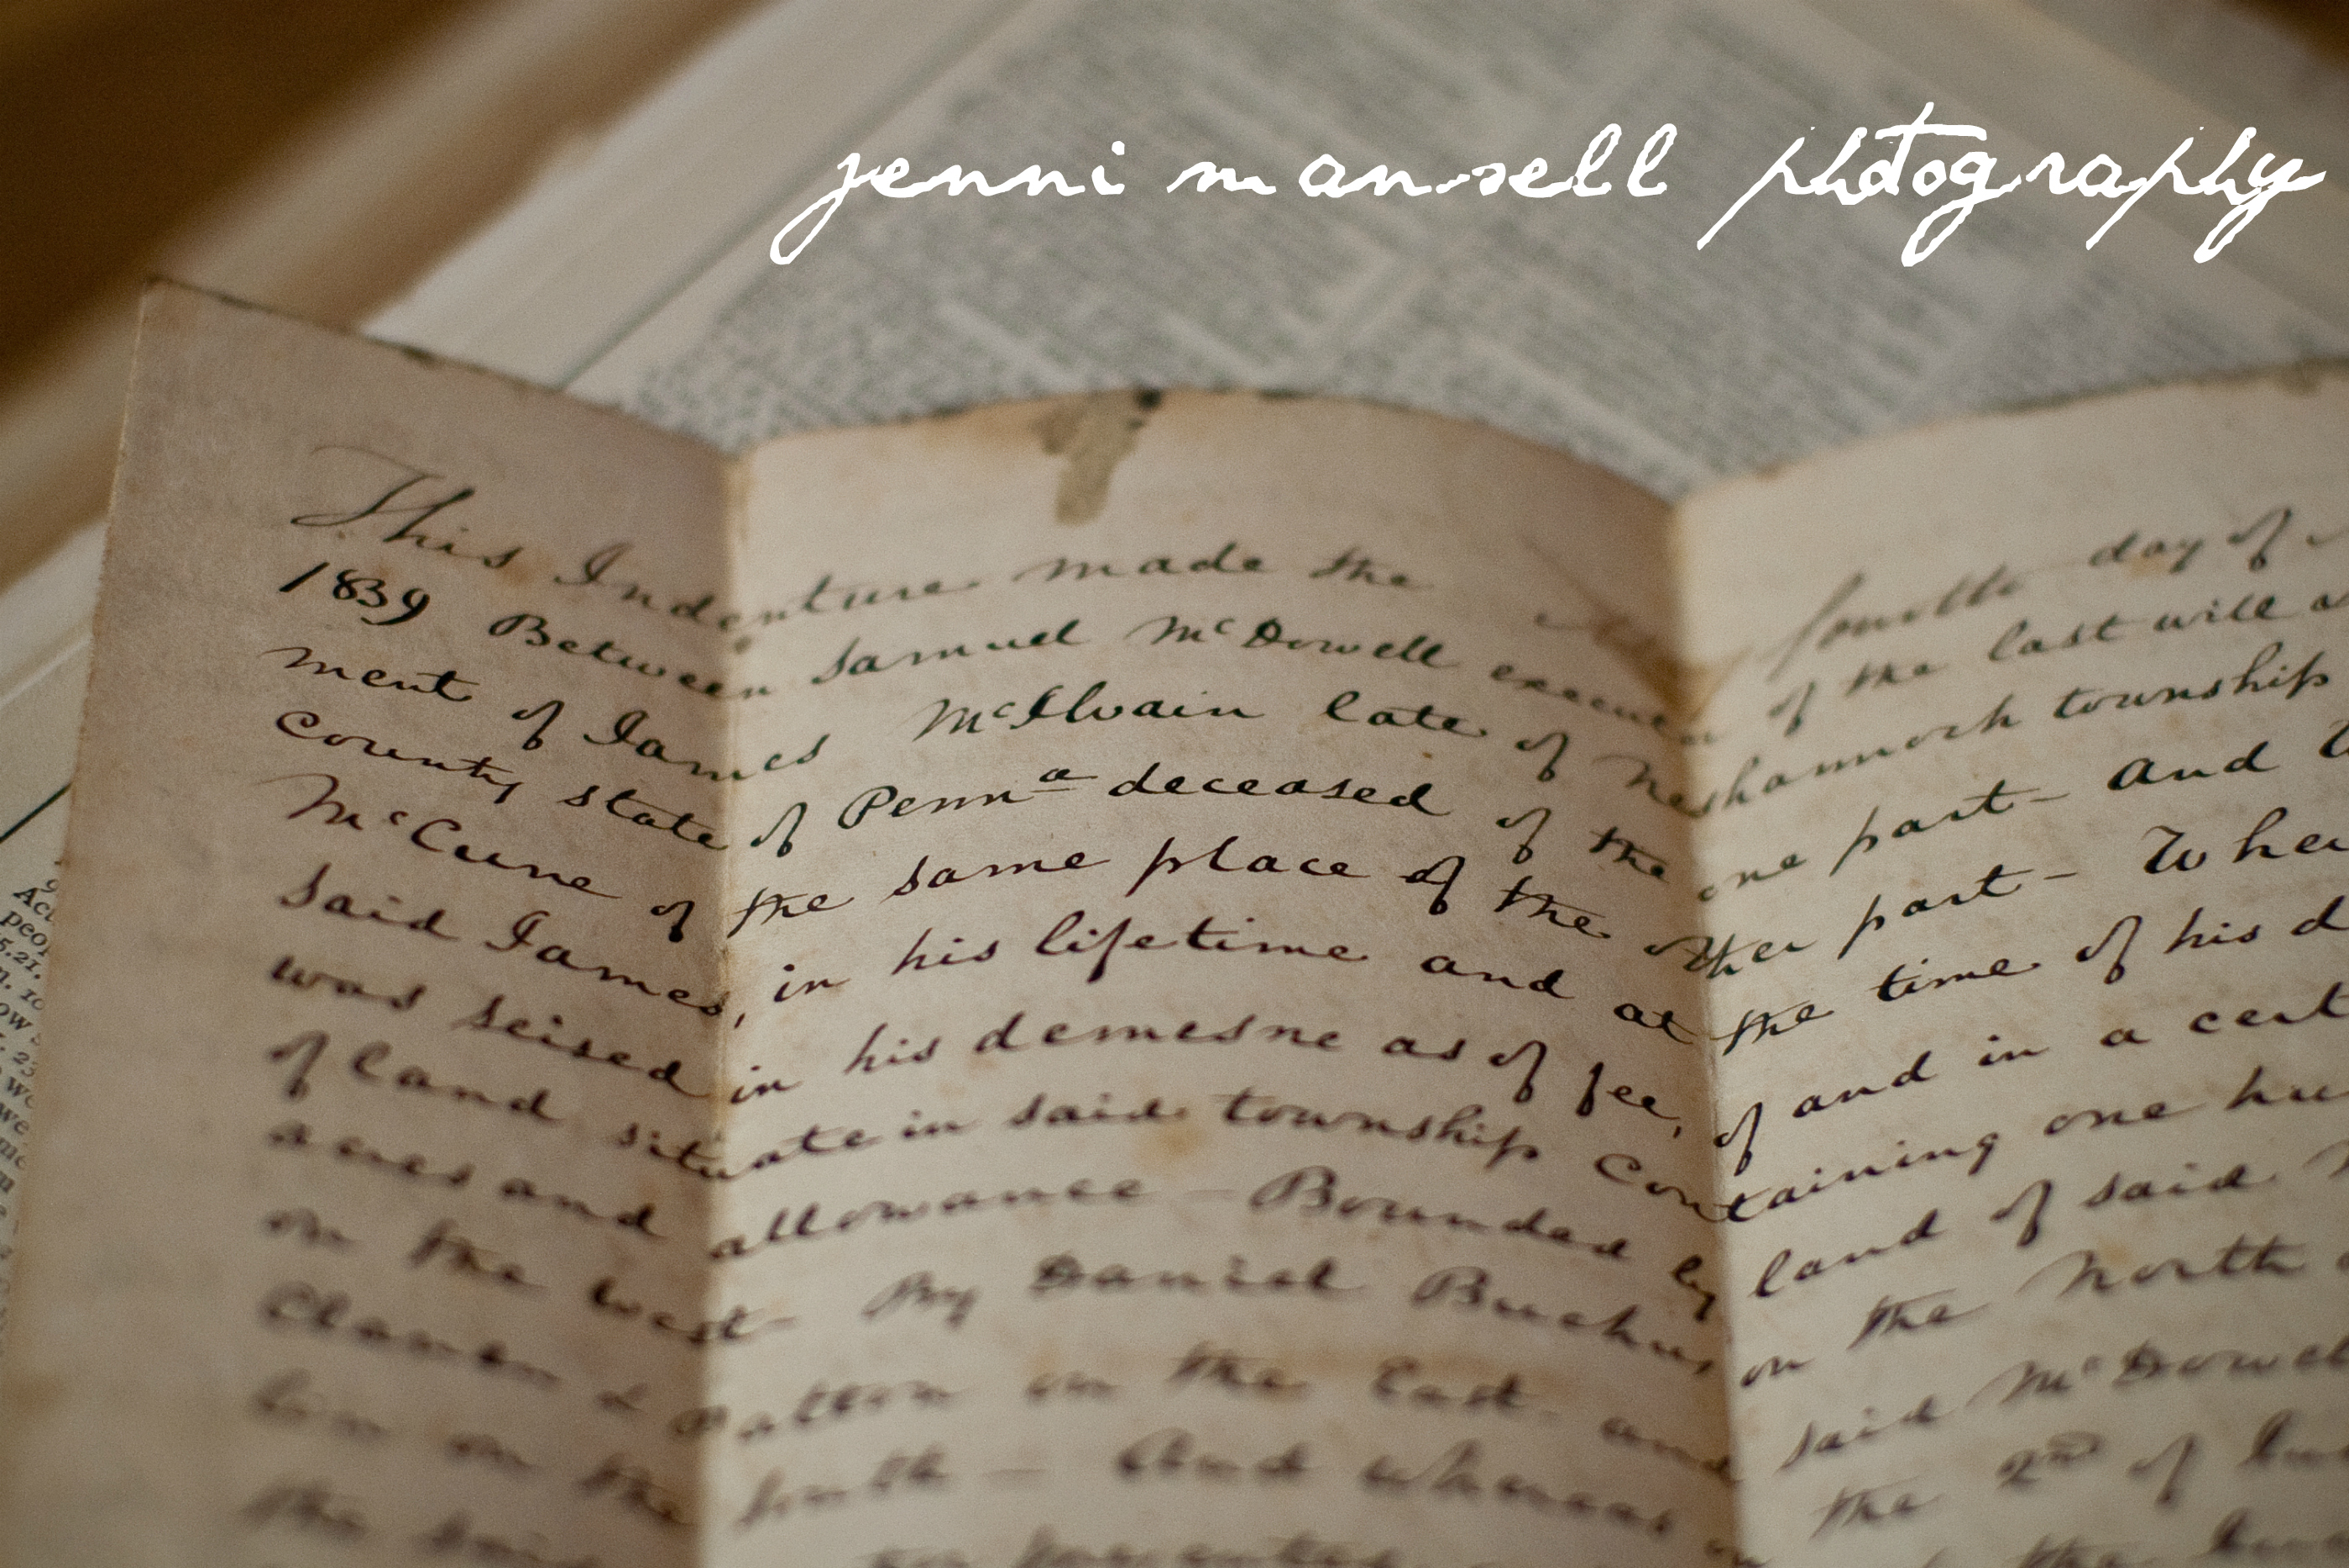 jenni mansell photography
This Indenture made the fourth day of
1839 Between Samuel McDowell executor of the last will
ment of James McElvain late of Neshannock township
County state of Penna deceased of the one part - And
McCune of the same place of the other part - Wher
said James, in his lifetime and at the time of his d
was seised in his demesne as of fee, of and in a cert
of land situate in said township Containing one hu
acres and allowance - Bounded by land of said
on the west By Daniel on the North
Patton on the East and said McDowel
on the South - And whereas the 2nd of
the said
Act
peop
5.21.